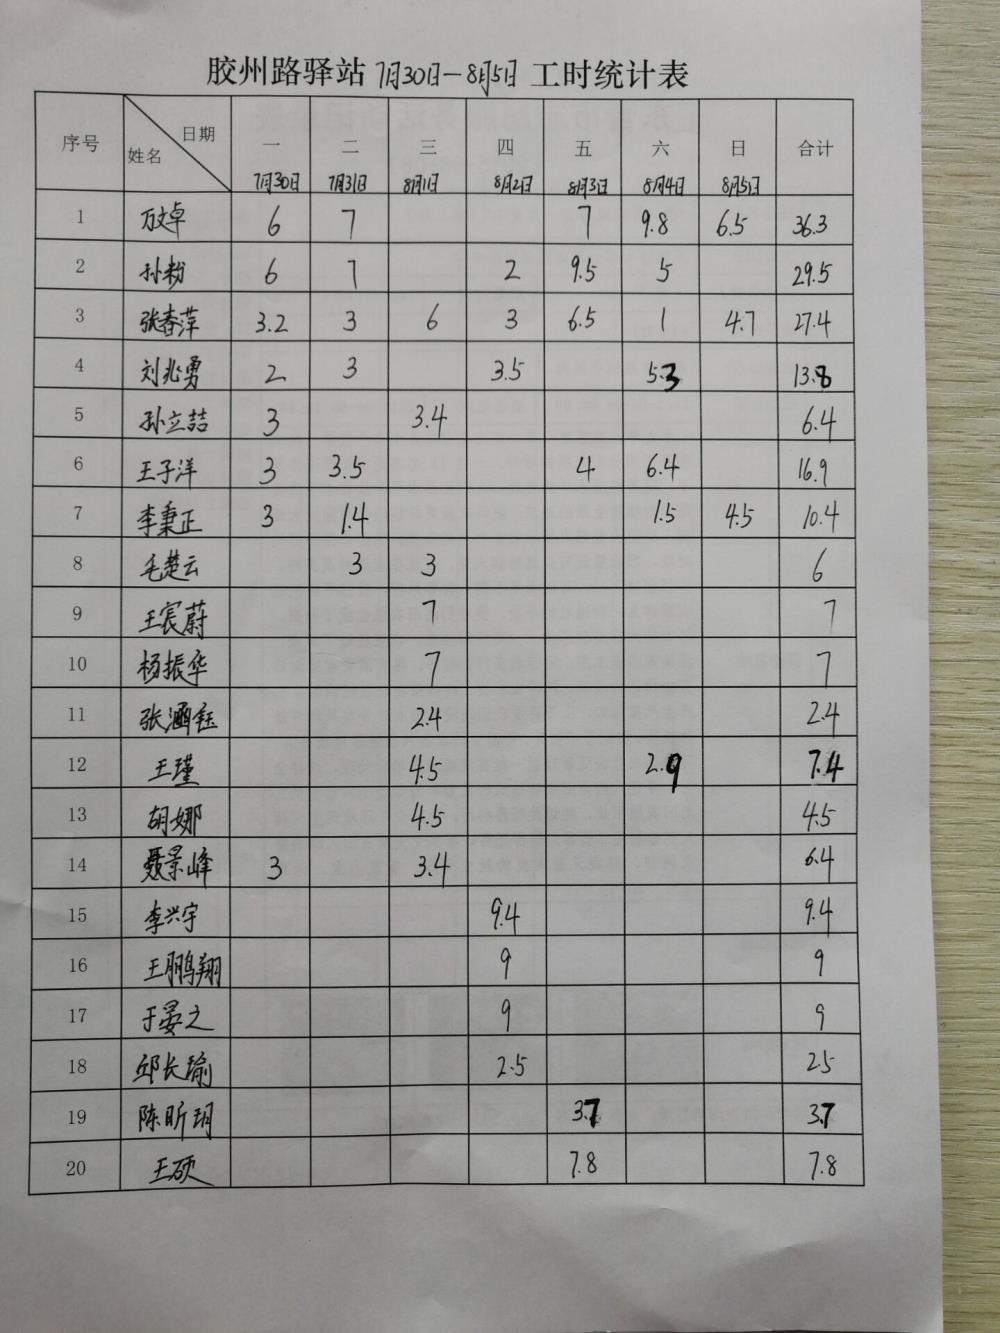 胶州路驿站 7月30日-8月5日 工时统计表
序号 日期 姓名 一 二 三 四 五 六 日 合计
7月30日 7月31日 8月1日 8月2日 8月3日 8月4日 8月5日
1 万文卓 6 7 7 9.8 6.5 36.3
2 孙粉 6 7 2 9.5 5 29.5
3 张春萍 3.2 3 6 3 6.5 1 4.7 27.4
4 刘兆勇 2 3 3.5 5.3 13.8
5 孙立喆 3 3.4 6.4
6 王子洋 3 3.5 4 6.4 16.9
7 李秉正 3 1.4 1.5 4.5 10.4
8 毛楚云 3 3 6
9 王宸蔚 7 7
10 杨振华 7 7
11 张涵钰 2.4 2.4
12 王瑾 4.5 2.9 7.4
13 胡娜 4.5 4.5
14 聂景峰 3 3.4 6.4
15 李兴宇 9.4 9.4
16 王鹏翔 9 9
17 于晏之 9 9
18 邱长瑜 2.5 2.5
19 陈昕玥 3.7 3.7
20 王硕 7.8 7.8